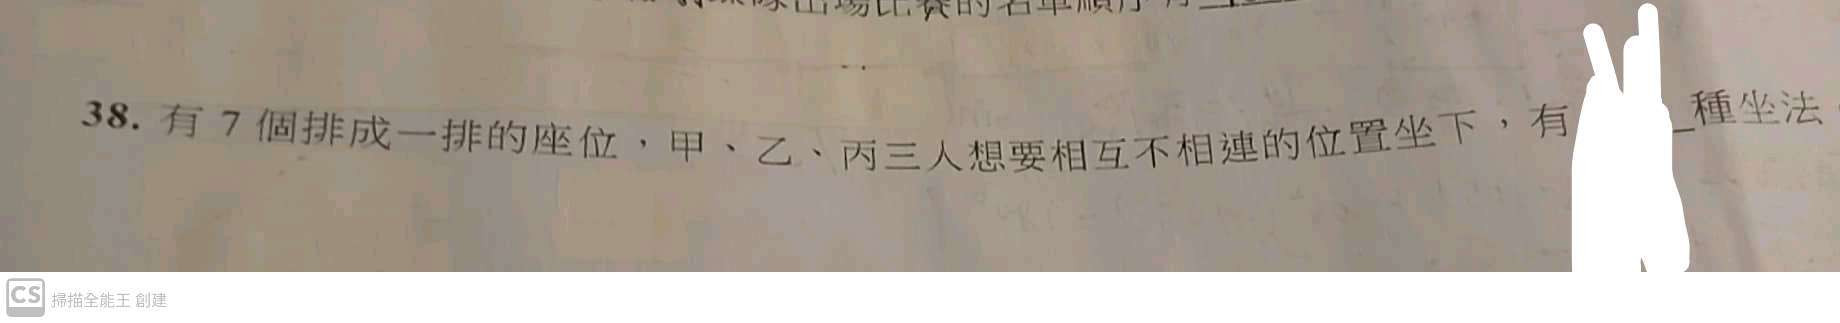 出場比賽的名單順序有
38. 有 7 個排成一排的座位，甲、乙、丙三人想要相互不相連的位置坐下，有＿種坐法。
CS 掃描全能王 創建